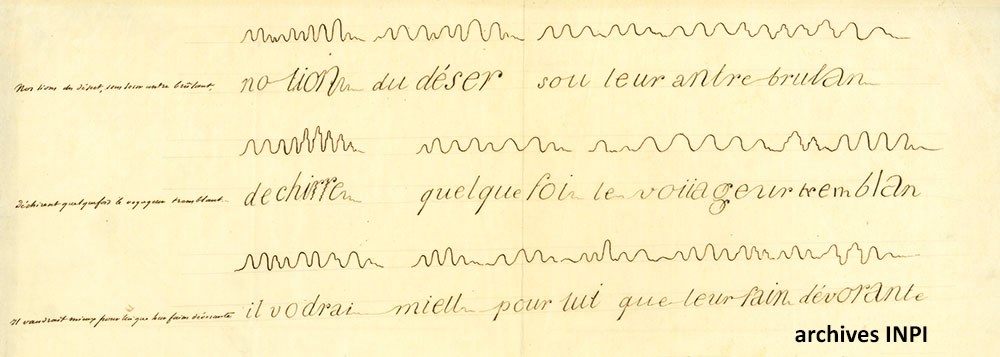 Nos lions du désert, sous leur antre brûlant, no lion du déser sou leur antre brulan
Déchirent quelquefois le voyageur tremblant dechirre quelque foi le voiiageur tremblan
Il vaudrait mieux pour lui que leur faim dévorante il vodrai miell pour lui que leur fain dévorante
archives INPI